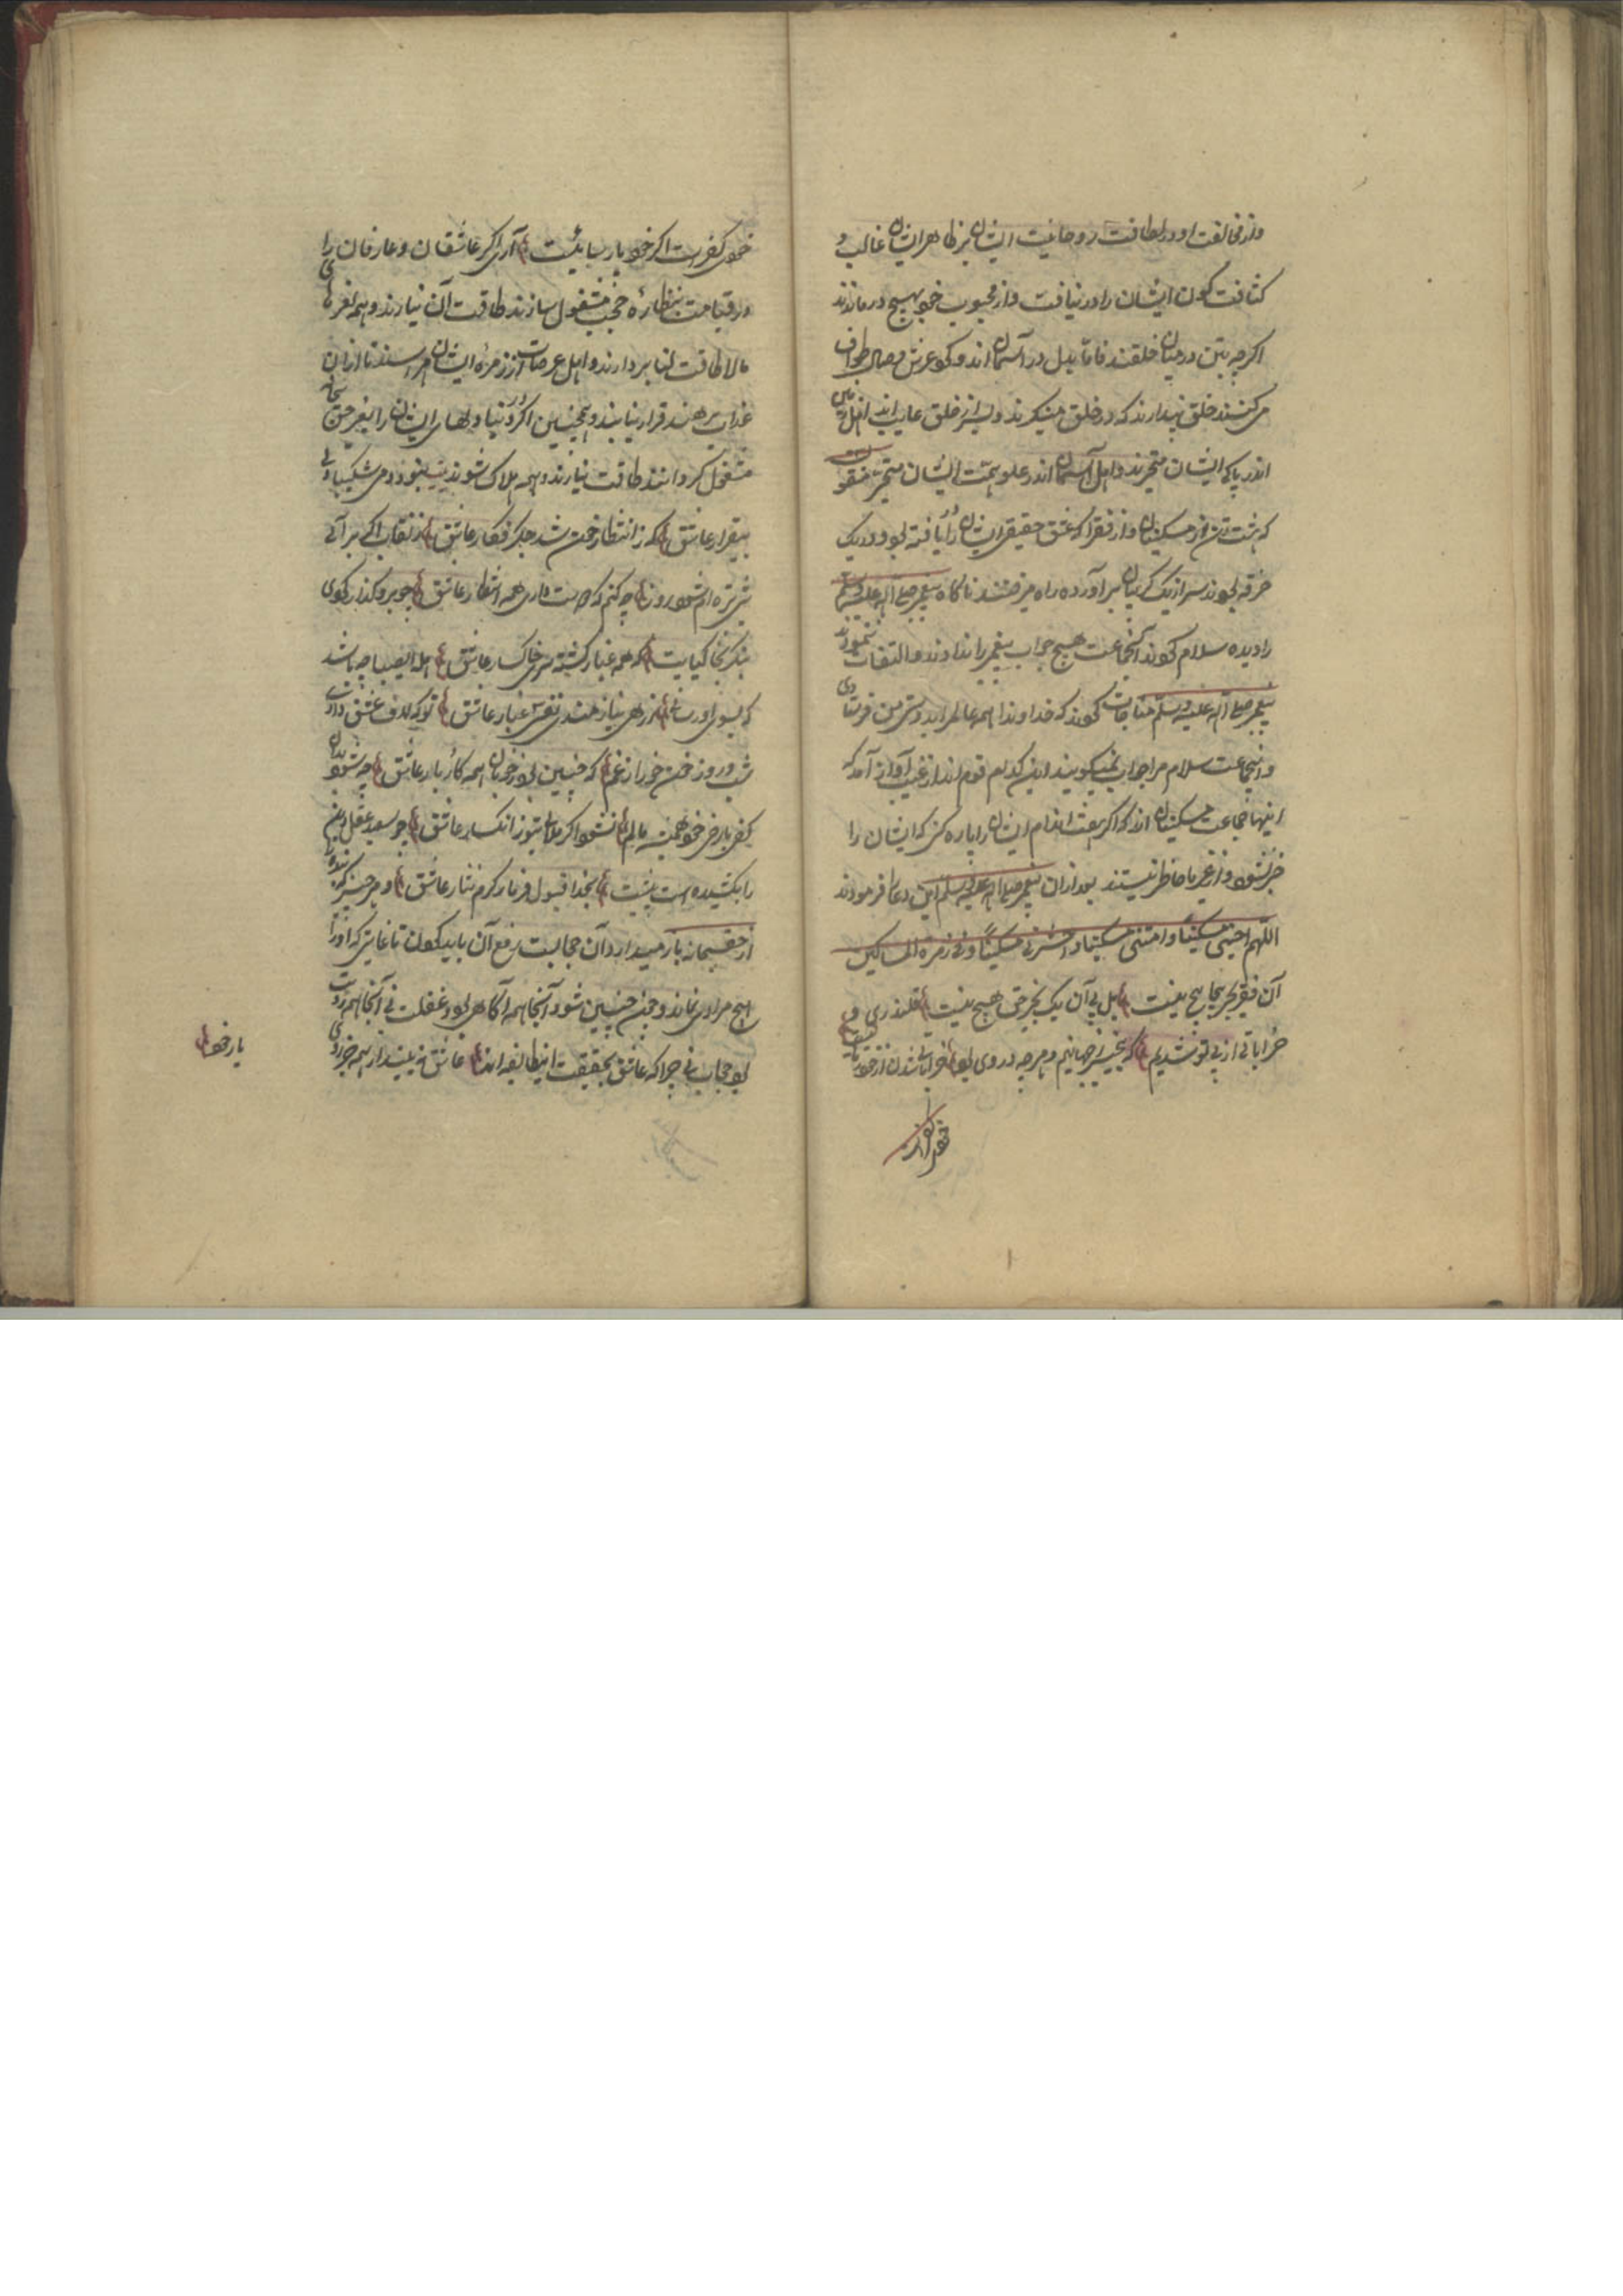 و از مخالفت او در لطافت روحانیت ایشان بر ظاهر ایشان غالب و
کثافت کون ایشان را در نیافت و از محبوب خود بهیچ در نماندند
اگرچه بتن در میان خلقند فاما بدل در آسمان اند و گرد عرش وصال طواف
می کنند خلق پندارند که در خلق مینگرند و لیک از خلق عاریند اهل زمین
اندر پاکی ایشان متحیرند و اهل آسمان اندر علو همت ایشان متحیر منقولست
که هشت تن از مسکینان و از فقرا که عشق حقیقی ایشان را یافته بود در یک
خرقه بودند سر از یک گریبان برآورده راه میرفتند ناگاه پیغمبر صلی الله علیه وسلم
را دیده سلام کردند آنجماعت هیچ جواب پیغمبر را ندادند و التفات ننمودند
پیغمبر صلی الله علیه وسلم مناجات کردند که خداوندا همه عالم را بدوستی من فرستادی
و اینجماعت سلام مرا جواب نمیگویند این کدام قوم اند از غیب آواز آمد که
اینها جماعت مسکینان اند که اگر هفت اندام ایشان را پاره کنی که ایشان را
خبر نشود و از غیر ما حاضر نیستند بعد ازان پیغمبر صلی الله علیه وسلم این دعا فرمودند
اللهم احینی مسکینا و امتنی مسکینا و احشرنی مسکینا و فی زمرة المساکین
آن فقر بهر بجا هیچ نیست بل پی آن یک بجز حق هیچ نیست قلندری و
خراباتی از پی تو شدیم که بیخبر از جهانیم و هرچه در وی بود خراباتی شدن از خود
خودی کفرست اگر خود پارسائیست آری اگر عاشقان و عارفان را
در قیامت بنظاره حجب مشغول سازند طاقت آن نیارند و همه نفر های
مالا طاقت لنا بردارند و اهل عرصات از زمره ایشان هراسند تا ازان
عذاب نرهند قرار نیابند و همچنین اگر در دنیا دلهای ایشان را بغیر حق سبحانه
مشغول گردانند طاقت نیارند و همه هلاک شوند بیت نبود دمی شکیبا دل
بیقرار عاشق که ز انتظار خون شد جگر فگار عاشق ز نقاب اگر برآئی
شب تیره ام شود روز چه کنم که صبت داری همه انتظار عاشق چو برو گذار کوی
بنگر بخاکپایت که همه غبار گشته سر خاکسار عاشق هله ای صبا چه باشد
که بسوی او رسانی ز ره نیازمندی نفسی غبار عاشق تو که لاف عشق داری
شب و روز خون خور از غم که چنین بود ز خوبان همه کار و بار عاشق چه شود بدان
کف پا رخ خود همیشه مالم نشود اگر ملالی بتو ز انکسار عاشق چو سعید عقل و دین
را بکشیده است پیشت بخدا قبول فرما ز کرم نثار عاشق و هر چیز که بنده را
از حق سبحانه باز میدارد آن حجابست رفع آن باید کردن تا غایتی که او را
هیچ مرادی نماند و چون چنین شود آنجا همه آگاهی بود غفلت نی آنجا همه رؤیت
بود حجاب نی چرا که عاشق بحقیقت اینطایفه اند عاشق نبیند از همه جز روی
یار خود